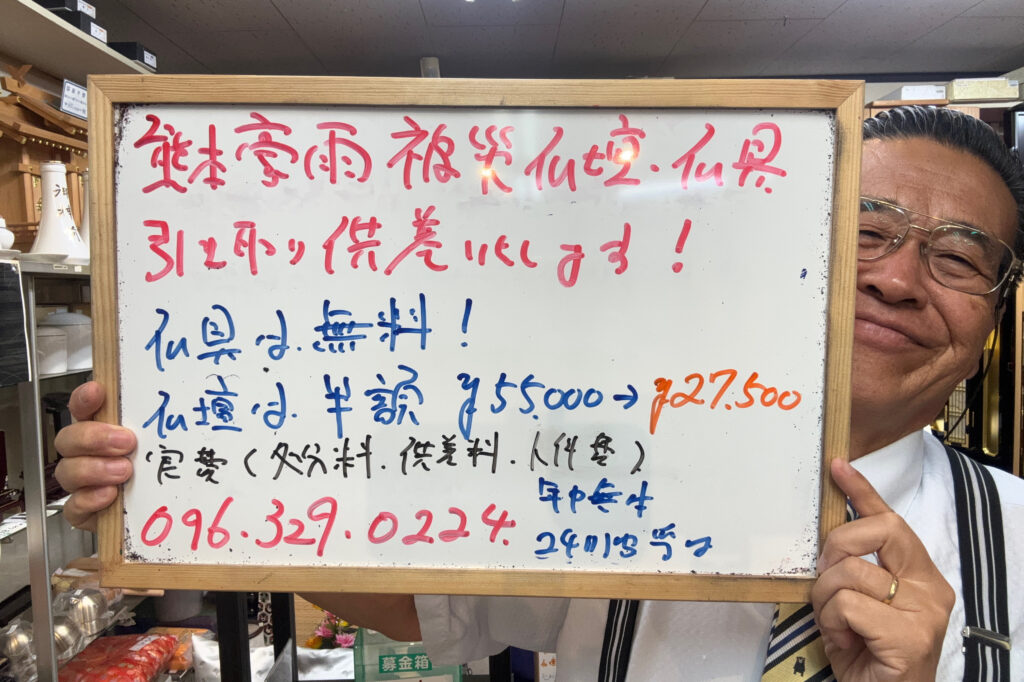 熊本豪雨被災仏壇・仏具
引き取り供養いたします！
仏具は、無料！
仏壇は、半額 ¥55.000→¥27.500
実費（処分料・供養料・人件費）
096.329.0224
年中無休
24時間受付
募金箱